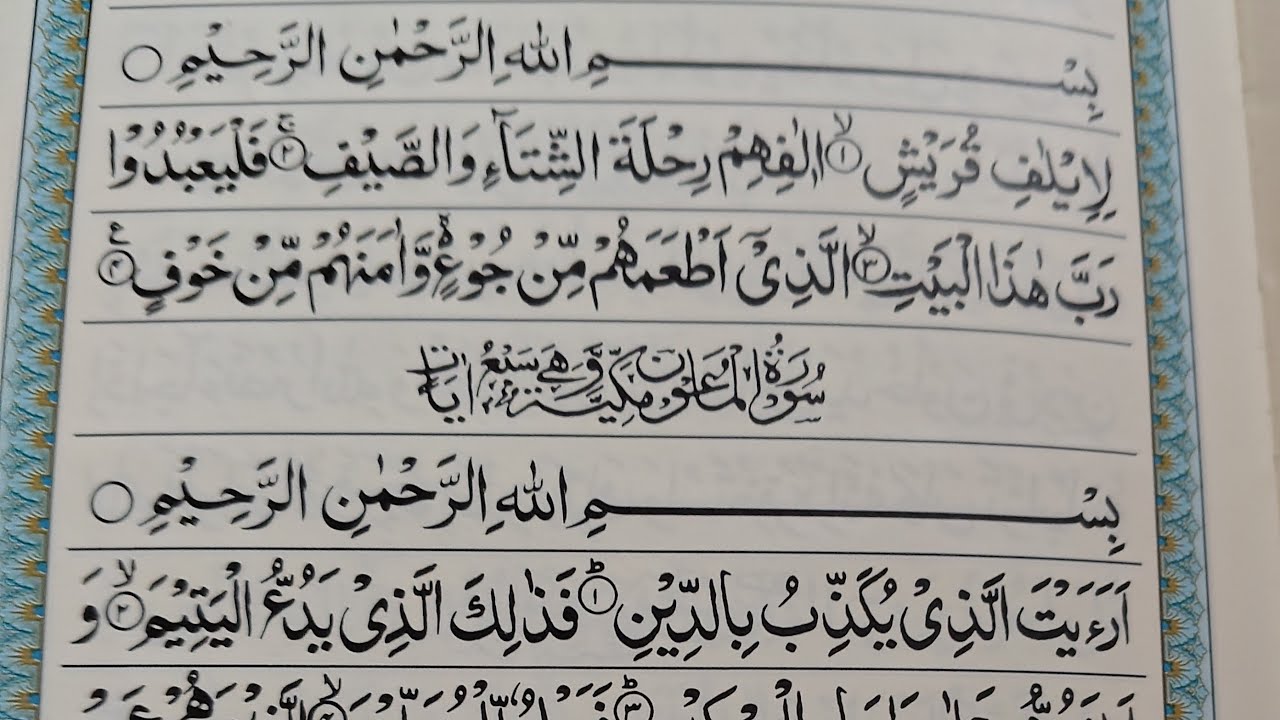 بِسْـــــــمِ اللّٰهِ الرَّحْمٰنِ الرَّحِيْمِ ○
لِاِيْلٰفِ قُرَيْشٍ ۙ﴿۱﴾ اٖلٰفِهِمْ رِحْلَةَ الشِّتَآءِ وَالصَّيْفِ ۚ﴿۲﴾ فَلْيَعْبُدُوْا
رَبَّ هٰذَا الْبَيْتِ ۙ﴿۳﴾ الَّذِيْۤ اَطْعَمَهُمْ مِّنْ جُوْعٍ ۬ۙ وَّاٰمَنَهُمْ مِّنْ خَوْفٍ ﴿۴﴾ ع
سُوْرَةُ الْمَاعُوْنِ مَكِّيَّةٌ وَّهِيَ سَبْعُ اٰيَاتٍ
بِسْـــــــمِ اللّٰهِ الرَّحْمٰنِ الرَّحِيْمِ ○
اَرَءَيْتَ الَّذِيْ يُكَذِّبُ بِالدِّيْنِ ؕ﴿۱﴾ فَذٰلِكَ الَّذِيْ يَدُعُّ الْيَتِيْمَ ۙ﴿۲﴾ وَ